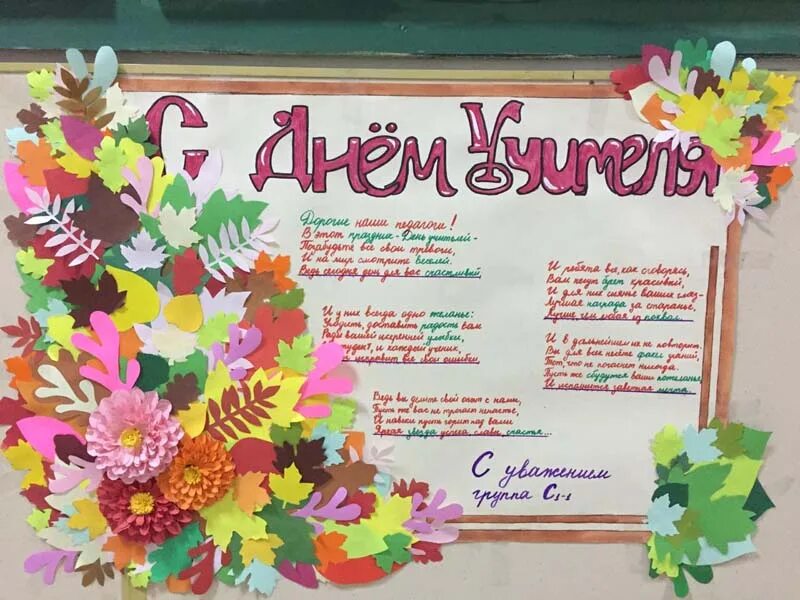 С Днём Учителя
Дорогие наши педагоги!
В этот праздник - День учителей -
Позабудьте все свои тревоги,
И на мир смотрите веселей.
Ведь сегодня день для вас счастливый,
И у них всегда одно желанье:
Угодить, доставить радость вам
Ради вашей искренней улыбки,
И студент, и каждый ученик,
исправит все свои ошибки
Ведь вы делите свой опыт с нами,
Пусть же вас не тронет ненастье,
И навеки пусть горит над вами
Яркая звезда успеха, славы, счастья...
И ребята все, как сговорясь,
Вам несут букет красивый,
И для них сиянье ваших глаз -
Лучшая награда за старанье,
Лучше, чем любая из похвал.
И в дальнейшем их не повторит,
Вы для всех несёте факел знаний,
Тот, что не погаснет никогда.
Пусть же сбудутся ваши пожеланья,
И исполнится заветная мечта.
С уважением
группа С₁-₁